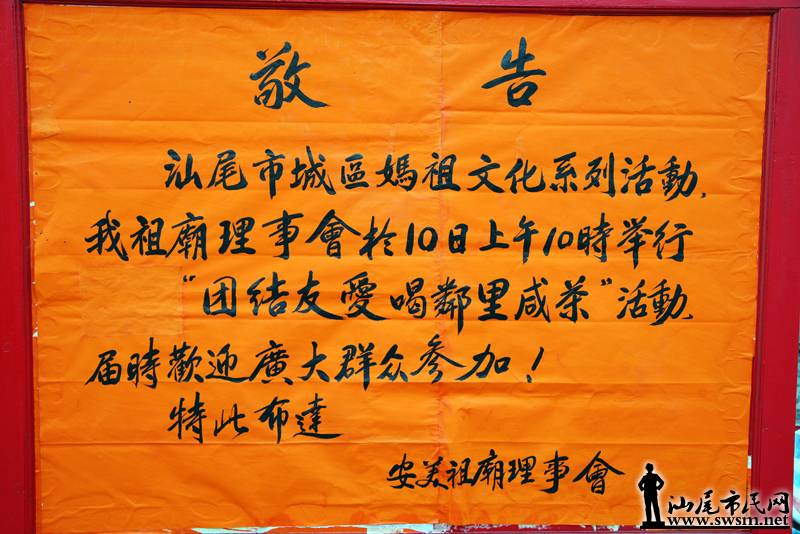 敬告
汕尾市城區媽祖文化系列活動,
我祖廟理事會於10日上午10時举行
“团结友愛喝鄰里咸茶”活動,
届時歡迎廣大群众參加!
特此布達
安美祖廟理事會
汕尾市民网
www.swsm.net